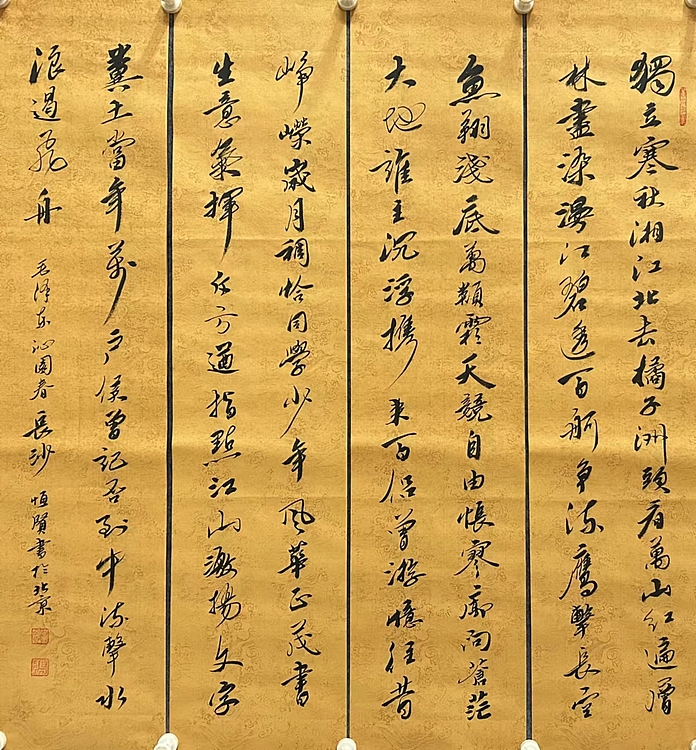 獨立寒秋湘江北去橘子洲頭看萬山紅遍層
林盡染漫江碧透百舸争流鷹擊長空
魚翔淺底萬類霜天競自由悵寥廓问蒼茫
大地誰主沉浮携来百侣曾游憶往昔
崢嶸歲月稠恰同學少年風華正茂書
生意氣揮斥方遒指點江山激揚文字
糞土當年萬户侯曾記否到中流擊水
浪遏飛舟 毛泽东沁園春長沙 恒賢書於北京